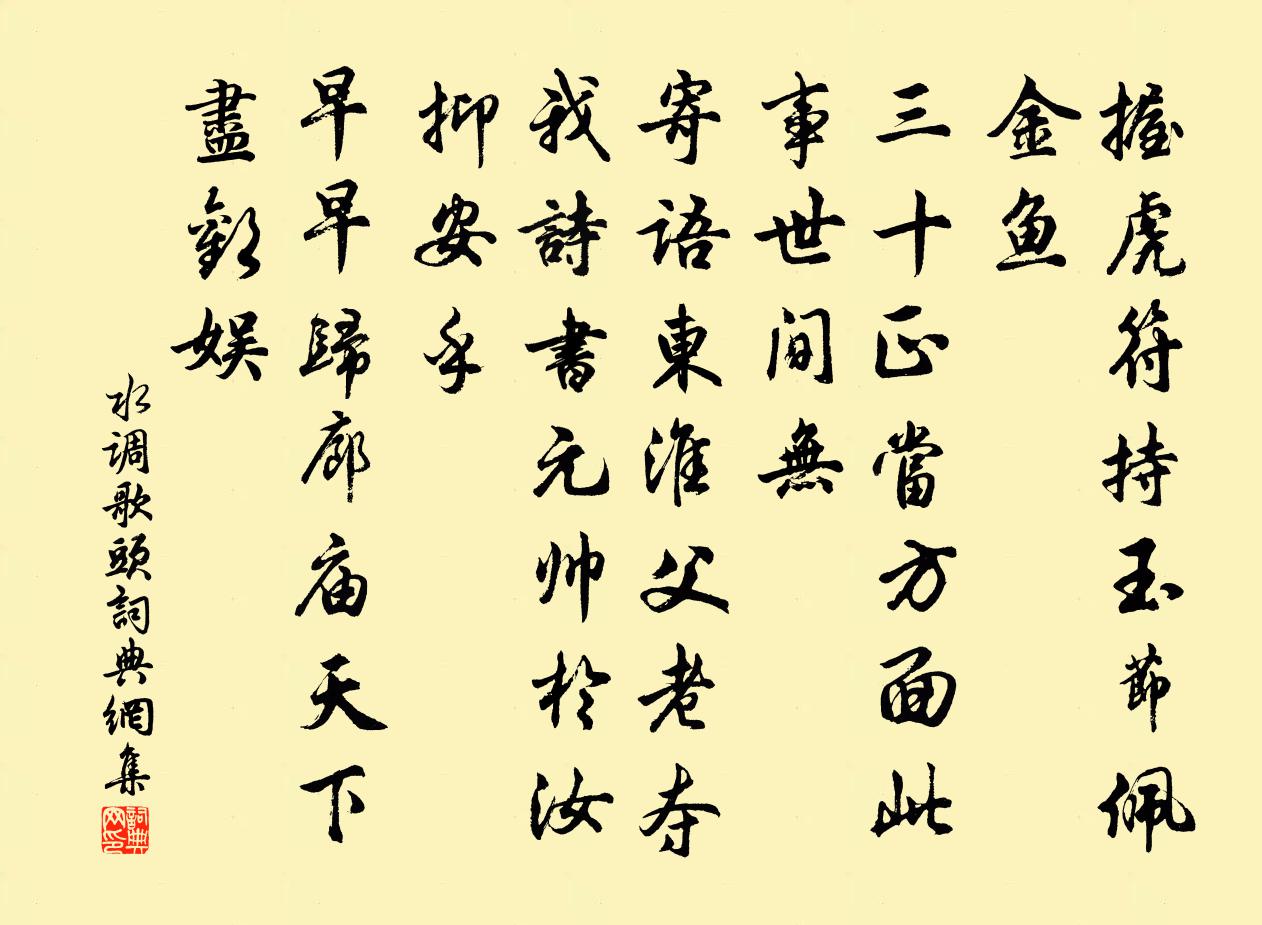 握虎符持玉節佩
金魚
三十正當方面此
事世间無
寄语東淮父老夺
我詩書元帅於汝
抑安乎
早早歸廊庙天下
盡歡娱
水调歌頭詞典網集
詞典網印